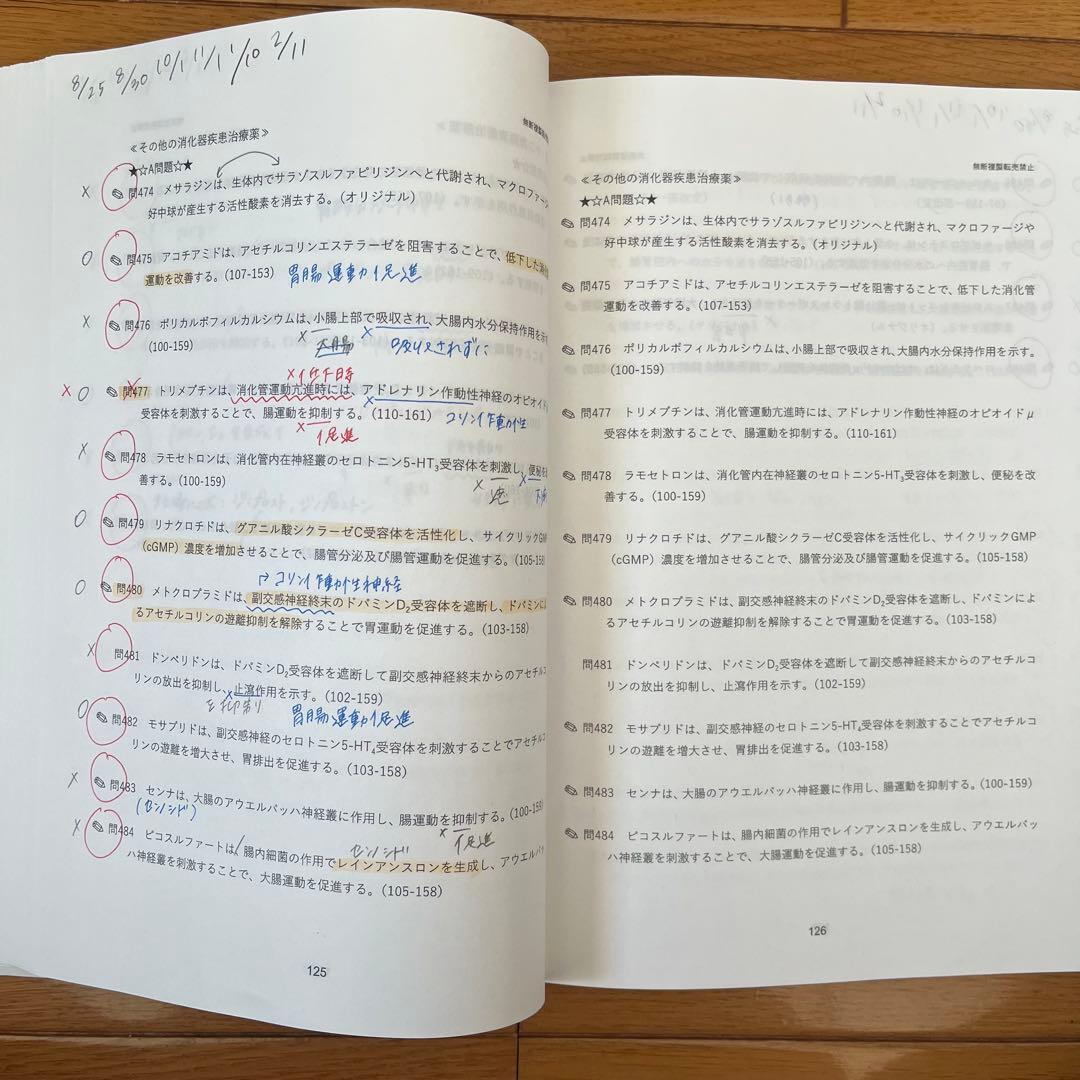 8/25 8/30 10/1 11/1 1/10 2/11
無断複製転売
≪その他の消化器疾患治療薬≫
★☆A問題☆★
× 問474 メサラジンは、生体内でサラゾスルファピリジンへと代謝され、マクロファージ
好中球が産生する活性酸素を消去する。(オリジナル)
○ 問475 アコチアミドは、アセチルコリンエステラーゼを阻害することで、低下した消
運動を改善する。(107-153) 胃腸運動促進
× 問476 ポリカルボフィルカルシウムは、小腸上部で吸収され、大腸内水分保持作用を示す
(100-159) × 大腸 × 吸収されずに
×低下時
× ○ 問477 トリメブチンは、消化管運動亢進時には、アドレナリン作動性神経のオピオイド
受容体を刺激することで、腸運動を抑制する。(110-161) コリン作動性
× 促進
× 問478 ラモセトロンは、消化管内在神経叢のセロトニン5-HT₃受容体を刺激し、便秘を
善する。(100-159) × ×
○ 問479 リナクロチドは、グアニル酸シクラーゼC受容体を活性化し、サイクリックGMP
(cGMP)濃度を増加させることで、腸管分泌及び腸管運動を促進する。(105-158)
コリン作動性神経
○ 問480 メトクロプラミドは、副交感神経終末のドパミンD₂受容体を遮断し、ドパミンによ
るアセチルコリンの遊離抑制を解除することで胃運動を促進する。(103-158)
× 問481 ドンペリドンは、ドパミンD₂受容体を遮断して副交感神経終末からのアセチルコ
リンの放出を抑制し、止瀉作用を示す。(102-159)
を抑制 × 胃腸運動促進
○ 問482 モサプリドは、副交感神経のセロトニン5-HT₄受容体を刺激することでアセチルコ
リンの遊離を増大させ、胃排出を促進する。(103-158)
× 問483 センナは、大腸のアウエルバッハ神経叢に作用し、腸運動を抑制する。(100-159)
(センノシド) × 促進
× 問484 ピコスルファートは、腸内細菌の作用でレインアンスロンを生成し、アウエルバッ
センノシド
ハ神経叢を刺激することで、大腸運動を促進する。(105-158)
125
無断複製転売禁止
≪その他の消化器疾患治療薬≫
★☆A問題☆★
問474 メサラジンは、生体内でサラゾスルファピリジンへと代謝され、マクロファージや
好中球が産生する活性酸素を消去する。(オリジナル)
問475 アコチアミドは、アセチルコリンエステラーゼを阻害することで、低下した消化管
運動を改善する。(107-153)
問476 ポリカルボフィルカルシウムは、小腸上部で吸収され、大腸内水分保持作用を示す。
(100-159)
問477 トリメブチンは、消化管運動亢進時には、アドレナリン作動性神経のオピオイドμ
受容体を刺激することで、腸運動を抑制する。(110-161)
問478 ラモセトロンは、消化管内在神経叢のセロトニン5-HT₃受容体を刺激し、便秘を改
善する。(100-159)
問479 リナクロチドは、グアニル酸シクラーゼC受容体を活性化し、サイクリックGMP
(cGMP)濃度を増加させることで、腸管分泌及び腸管運動を促進する。(105-158)
問480 メトクロプラミドは、副交感神経終末のドパミンD₂受容体を遮断し、ドパミンによ
るアセチルコリンの遊離抑制を解除することで胃運動を促進する。(103-158)
問481 ドンペリドンは、ドパミンD₂受容体を遮断して副交感神経終末からのアセチルコ
リンの放出を抑制し、止瀉作用を示す。(102-159)
問482 モサプリドは、副交感神経のセロトニン5-HT₄受容体を刺激することでアセチルコ
リンの遊離を増大させ、胃排出を促進する。(103-158)
問483 センナは、大腸のアウエルバッハ神経叢に作用し、腸運動を抑制する。(100-159)
問484 ピコスルファートは、腸内細菌の作用でレインアンスロンを生成し、アウエルバッ
ハ神経叢を刺激することで、大腸運動を促進する。(105-158)
126